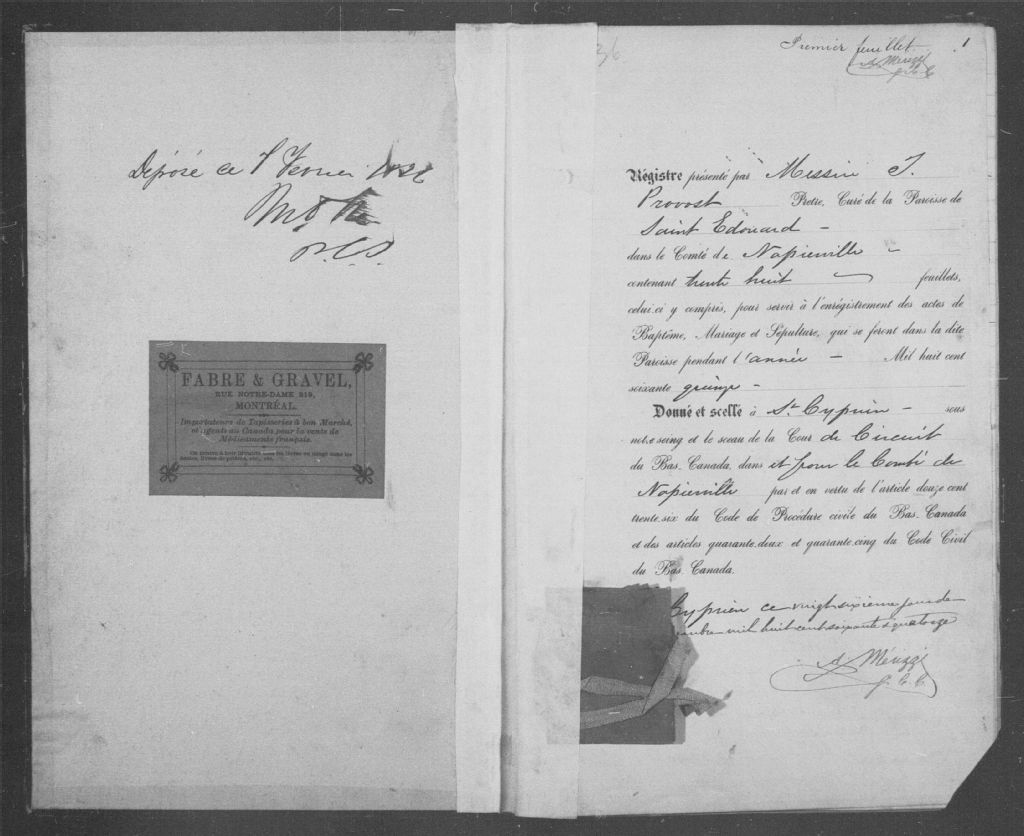 Déposé ce 7 Fevrier
FABRE & GRAVEL,
RUE NOTRE-DAME 219,
MONTRÉAL.
Importateurs de Tapisseries à bon Marché,
et agents au Canada pour la vente de
Médicaments français.
Premier feuillet. 1
A. Méuzzi
G. C. C.
Régistre présenté par Messire J.
Provost Prêtre, Curé de la Paroisse de
Saint Edouard -
dans le Comté de Napierville -
contenant trente huit feuillets,
celui-ci y compris, pour servir à l'enrégistrement des actes de
Baptême, Mariage et Sépulture, qui se feront dans la dite
Paroisse pendant l'année - Mil huit cent
soixante quinze -
Donné et scellé à St Cyprien - sous
notre seing et le sceau de la Cour de Circuit
du Bas-Canada, dans et pour le Comté de
Napierville par et en vertu de l'article douze cent
trente-six du Code de Procédure civile du Bas-Canada
et des articles quarante-deux et quarante-cinq du Code Civil
du Bas-Canada.
Cyprien ce vingt sixieme jour de
mil huit cent soixante & quatorze
G. C. C.